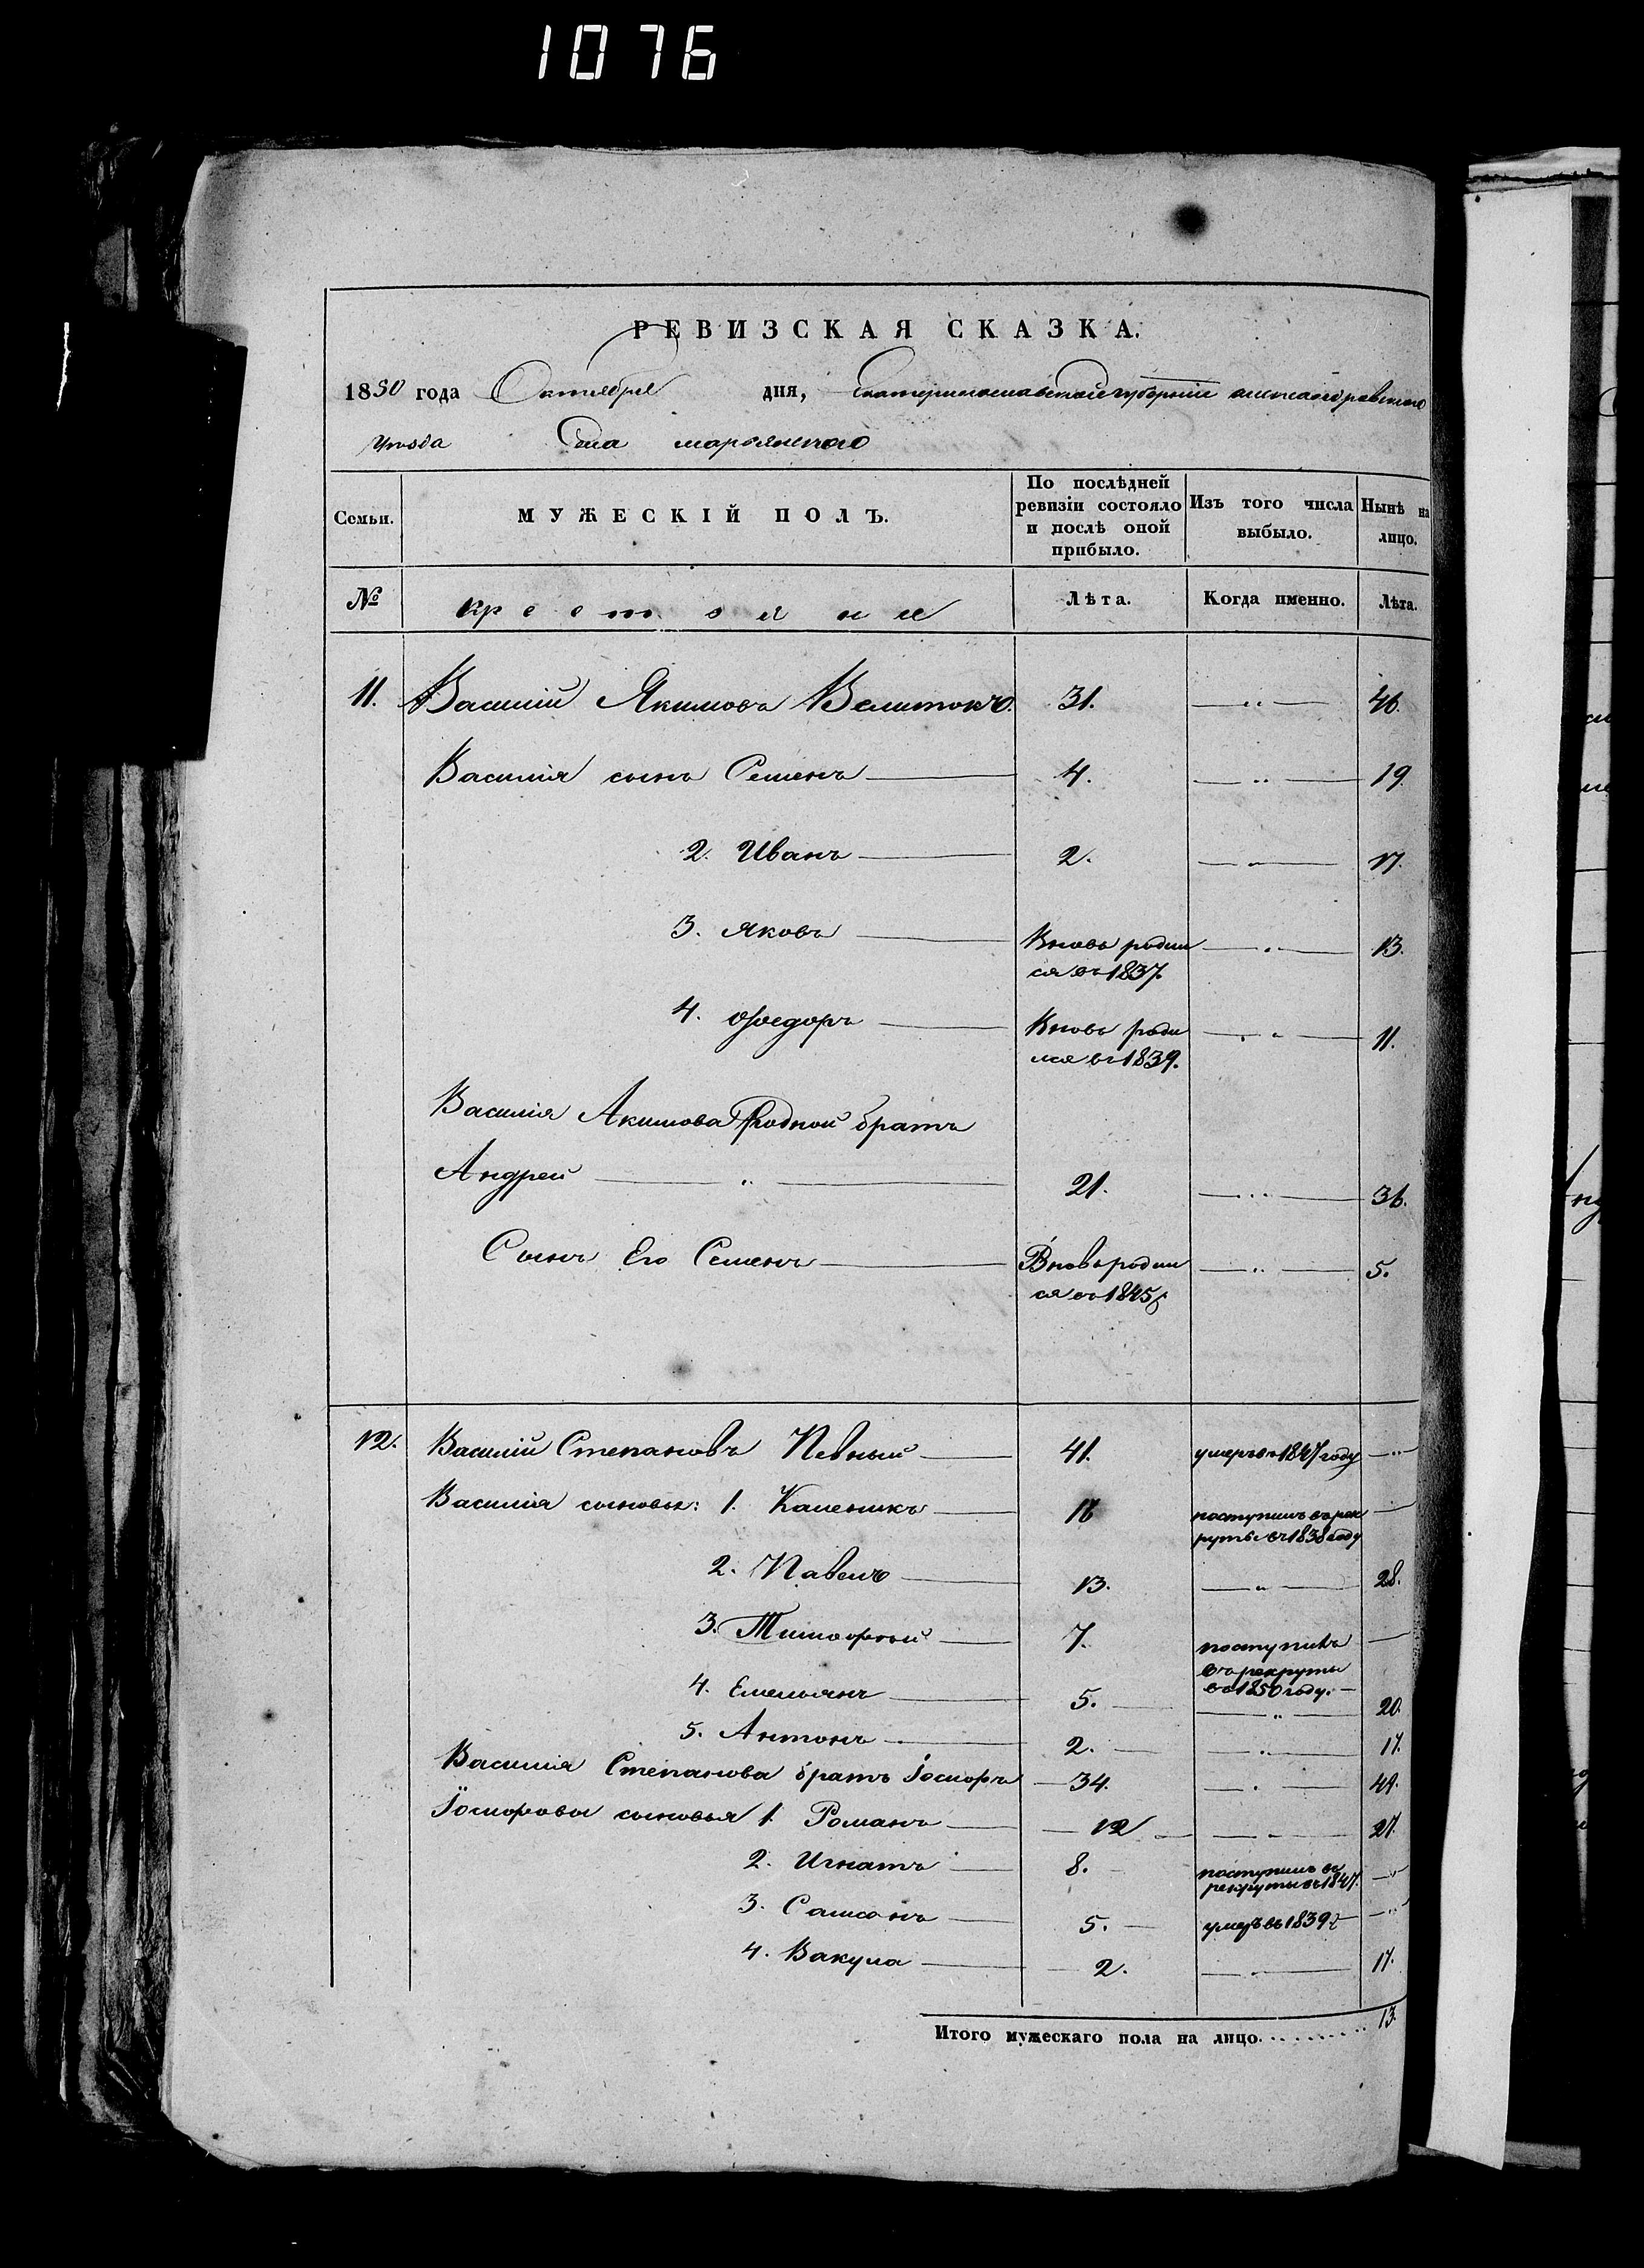 1076
РЕВИЗСКАЯ СКАЗКА.
1850 года Октября дня, Екатеринославской губерніи александровскаго
Уѣзда Села марьянскаго
Семьи. МУЖЕСКІЙ ПОЛЪ. По послѣдней ревизіи состояло и послѣ оной прибыло. Изъ того числа выбыло. Нынѣ на лицо.
№ крестьяне Лѣта. Когда именно. Лѣта.
11. Василій Якимовъ 31. — „ — 46.
Василія сынъ Семенъ — 4. — „ — 19.
2. Иванъ — 2. — „ — 17.
3. Яковъ — Вновь родил — „ — 13.
ся въ 1837.
4. Ѳедоръ — Вновь роди — „ — 11.
лся въ 1839.
Василія Акимова Родной братъ
Андрей — „ — 21. — „ — 36.
Сынъ Его Семенъ — Вновь родил — „ — 5.
ся въ 1845
12. Василій Степановъ Певный — 41. умеръ въ 1847 году — „
Василія сыновья: 1. Каленикъ — 16 поступилъ въ рек —
руты въ 1838 году
2. Павелъ — 13. — „ — 28.
3. Тимофѣй — 7. поступилъ —
въ рекруты
въ 1850 году. —
4. Емельянъ — 5. — „ — 20.
5. Антонъ — 2. — „ — 17.
Василія Степанова братъ Іосифъ — 34. — „ — 49.
Іосифовы сыновья 1. Романъ — 12 — „ — 27.
2. Игнатъ — 8. поступилъ въ — „
рекруты въ 1847.
3. Самсонъ — 5. — умеръ въ 1839 — „
4. Вакула — 2. — „ — 17.
Итого мужескаго пола на лицо. . . . . . . . . . 13.